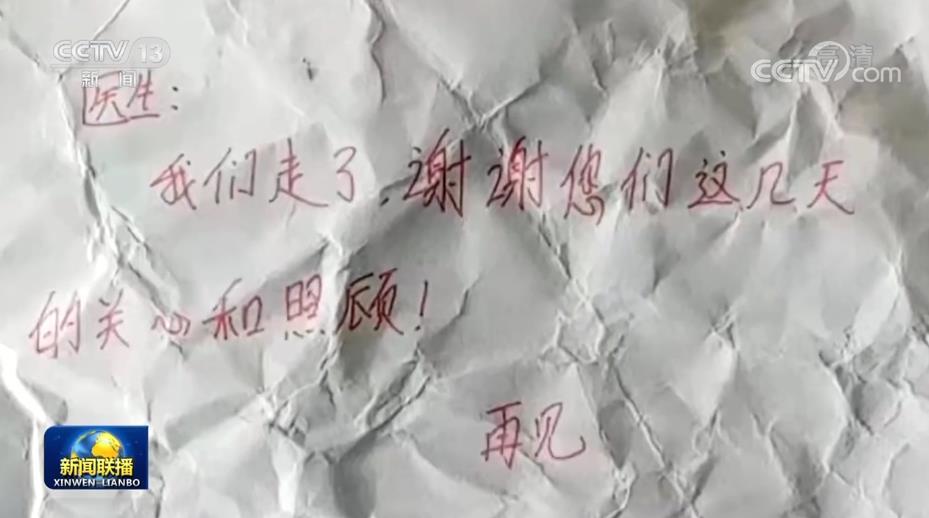 CCTV 13
新闻
高清
CCTV.com
医生：
我们走了，谢谢您们这几天
的关心和照顾！
再见
新闻联播
XINWEN LIANBO